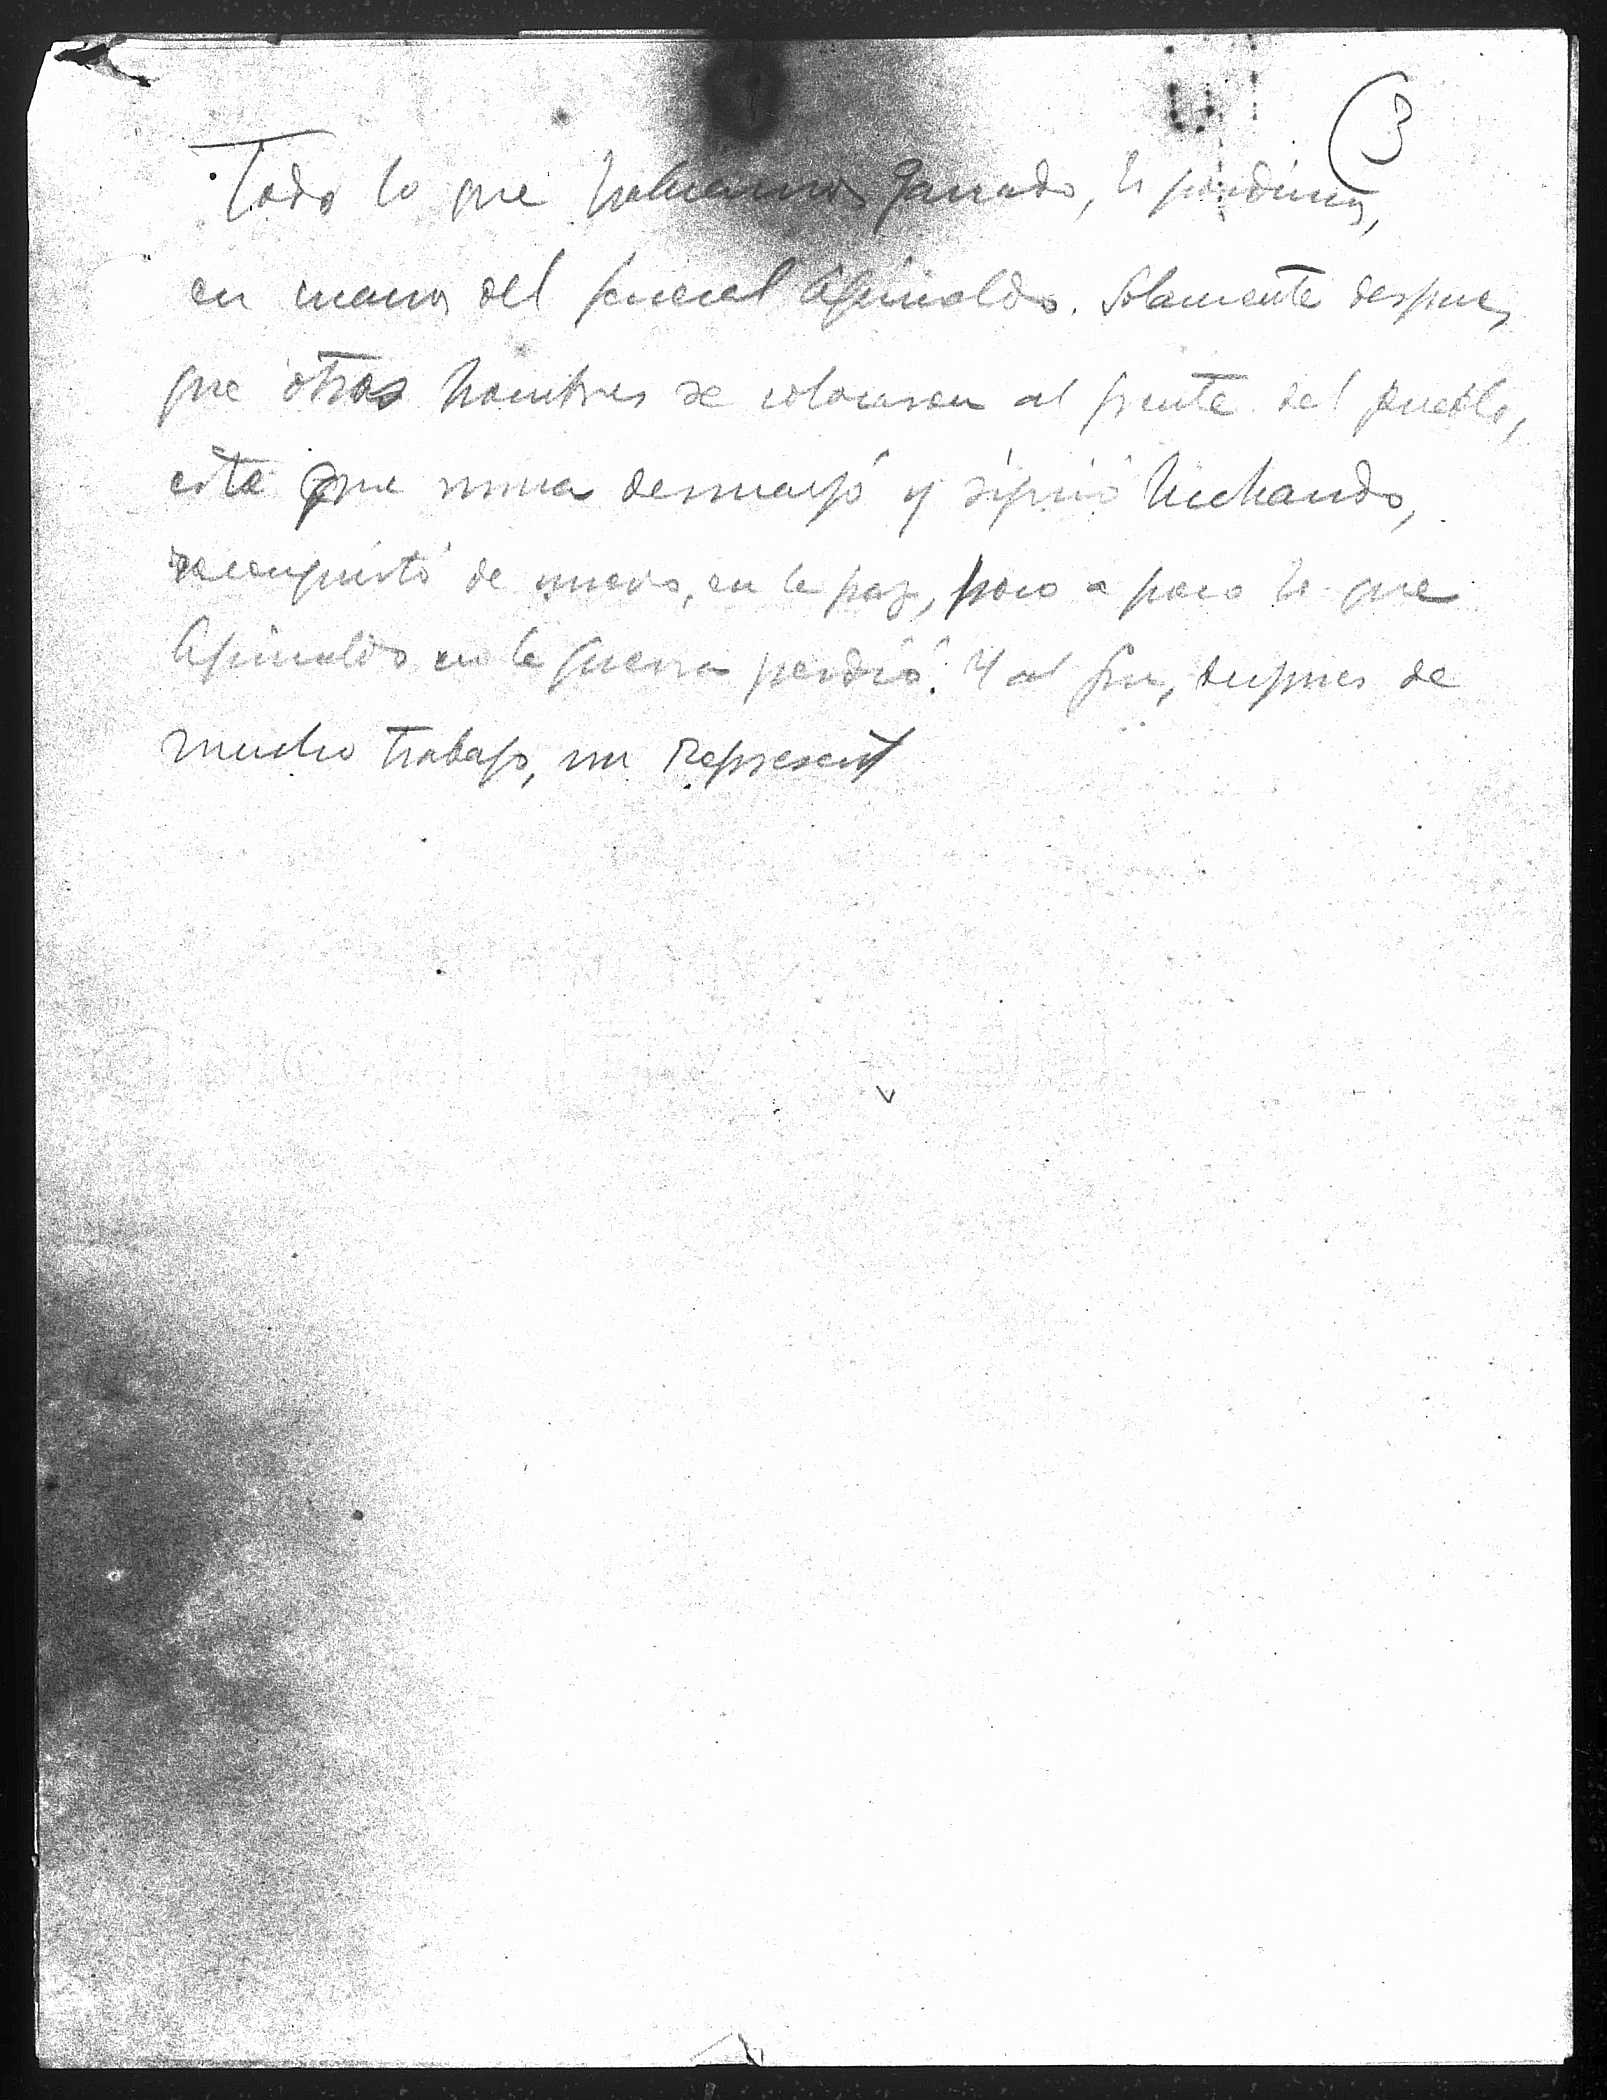 3
Todo lo que habiamos ganado, lo perdimos,
en manos del general Aguinaldo. Solamente despues
que otros hombres se colocaron al frente del pueblo,
este que nunca desmayó y siguió luchando,
reconquistó de nuevo, en la paz, poco a poco lo que
Aguinaldo en la guerra perdió. Y al fin, despues de
mucho trabajo, un represent